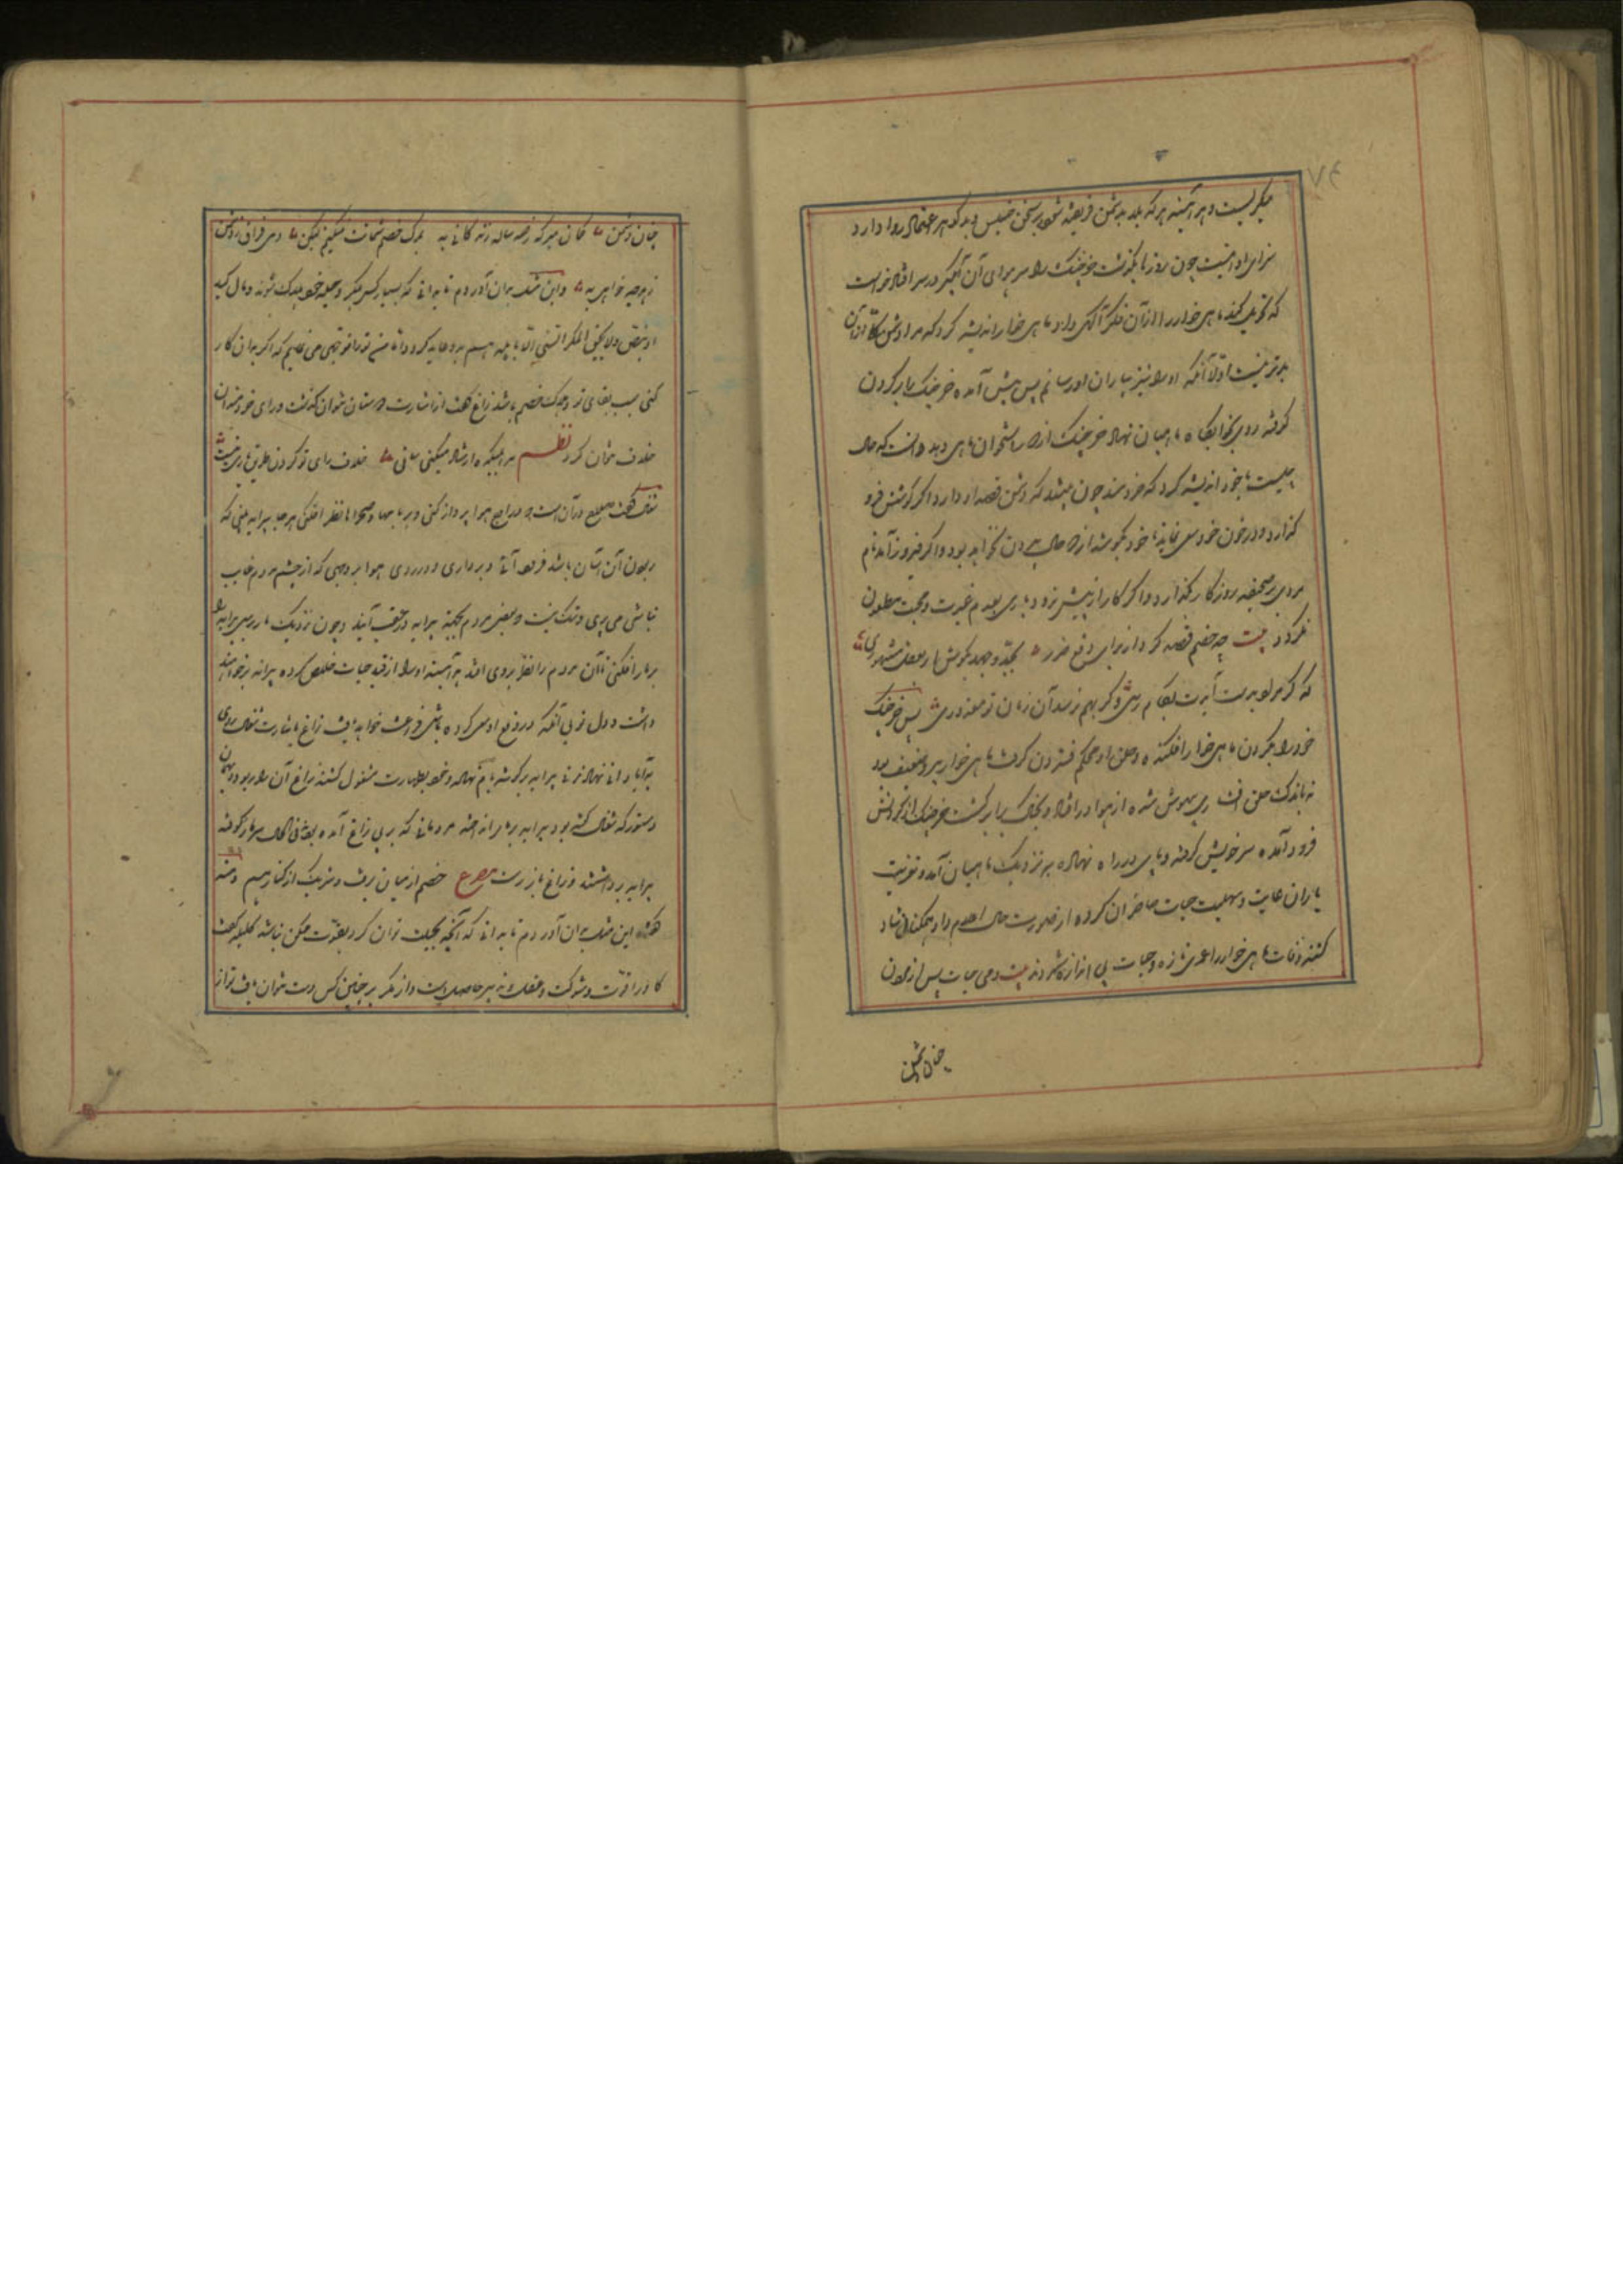 میگریست و هر آینه هرکه بلابه دشمن فریفته شود و بر سخن خسیس و بدگوهر اعتماد روا دارد
سزای او اینست چون روزها بگذشت خرچنگ را سر هوای آن آبگیر در سر افتاد خواست
که تحویل کند ماهی‌خوار را از آن فکر آگهی داد ماهی‌خوار اندیشه کرد که مرا دشمنی از آن
بدتر نیست اولی آنکه او را نیز بیاران او رسانم پس پیش آمده خرچنگ را بر گردن
گرفته روی بخوابگاه ماهیان نهاد خرچنگ از دور استخوان ماهی دید دانست که حال
چیست با خود اندیشه کرد که خردمند چون بیند که دشمن قصد او دارد اگر کوشش فرو
گذارد در خون خود سعی نماید و چون بکوشد از دو حال بیرون نخواهد بود و اگر فیروز آمد نام
مردی بر صحیفه روزگار گذارد و اگر کار از پیش نرود باری بعدم غیرت و حمیت مطعون
نگردد بیت چو خصم قصد تو کرد از برای دفع ضرر بجد و جهد بکوش ار بعقل مشهوری
که گر مراد بدست آیدت بکام رسی وگر بهم نرسد آن زمان تو معذوری پس خرچنگ
خود را بگردن ماهی‌خوار افکنده و حلق او محکم فشردن گرفت ماهی‌خوار پیر و ضعیف بود
به اندک حلق افشاری بیهوش شده از هوا در افتاد و بخاک برابر گشت خرچنگ از گردنش
فرود آمده سر خویش گرفته و پای در راه نهاده بنزدیک ماهیان آمد و تعزیت
یاران غایب و تهنیت حیات حاضران کرده از صورت حال اعلام داد همگنان شاد
گشته وفات ماهی‌خوار را عمری تازه و حیات بی اندازه شمردند بیت دمی حیات پس از مردن
چنان دشمن
چنان دشمن گمان مبر که ز صد ساله زندگانی به بمرگ خصم شماتت نمیکنم لیکن دمی فراق ز دشمن
ز هرچه خواهی به و این مثل بدان آوردم تا بدانی که بسیار کس بمکر و حیله خود هلاک شوند و وبال کید
او بنص ولا یحیق المکر السیئ الا باهله هم بدو عاید گردد و اما من ترا وجهی می نمایم که اگر بدان کار
کنی سبب بقای تو و هلاک خصم باشد زاغ گفت از اشارت دوستان نتوان گذشت و رای خردمندان
خلاف نتوان کرد نظم مرا میکده ارشاد میکنی ساقی خلاف رای تو کردن طریق یاری نیست
شغال گفت صلاح در آن است که در اوج هوا پرواز کنی و بر بامها و صحراها نظر افکنی هر جا پیرایه بینی که
ربودن آن آسان باشد فرود آئی و برداری و در روی هوا بر وجهی که از چشم مردم غایب
نباشی می پری و شک نیست که بعضی مردم بجهت پیرایه در عقب آیند و چون نزدیک مار رسی پیرایه
بر مار افکنی تا آن مردم را نظر بر وی افتد هر آینه او را از قید حیات خلاص کرده پیرایه برخواهند
داشت و دل تو بی آنکه در دفع او سعی کرده باشی فراغت خواهد یافت زاغ باشارت شغال روی
بآبادانی نهاد زنی پیرایه بر گوشه بام نهاده و خود بطهارت مشغول گشته زاغ آن را در ربود و بهمان
دستور که شغال گفته بود پیرایه بر مار انداخت مردمانی که پی زاغ آمده بودند فی الحال سر مار کوفته
پیرایه برداشتند و زاغ باز رست مصرع خصم از میان برفت و سرشک از کنار هم دمنه
گفت این مثل بدان آوردم تا بدانی که آنچه بحیلت توان کرد بقوت ممکن نباشد کلیله گفت
گاو را قوت و شوکت و عقل و تدبیر حاصل است و از مکر بر چنین کس دست نتوان یافت تو از